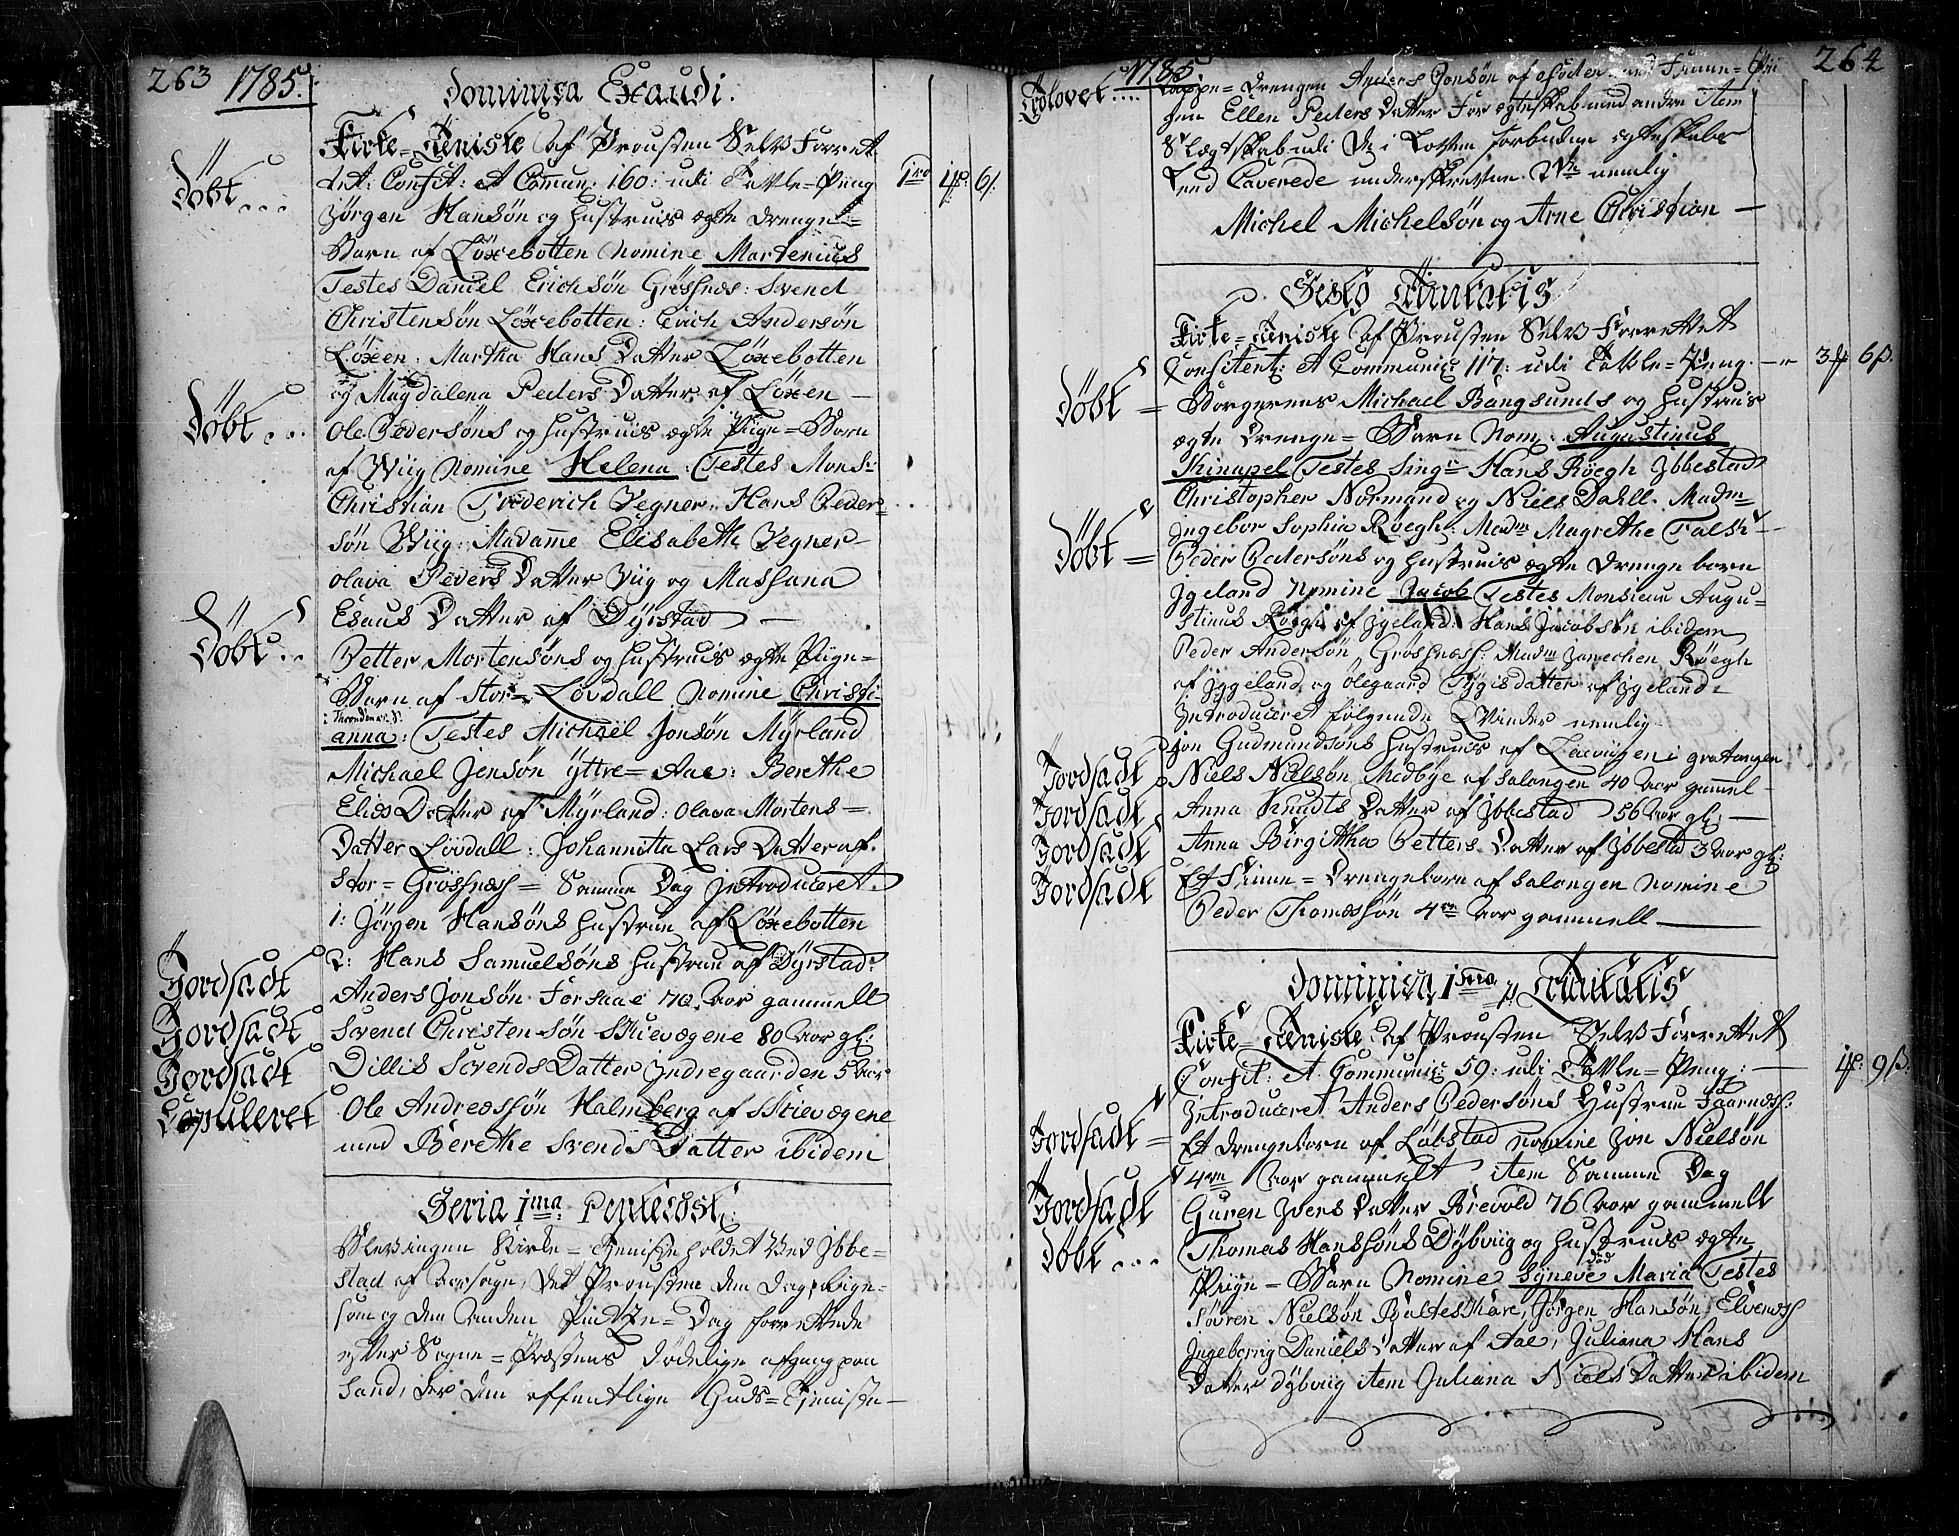 263 1785.
Dominica Exaudi.
Kirke=Tieniste af Prousten Selv Forret-
Döbt...
tet: Confit: et Commun: 160: udi Tavle=Peng 1rd 4# 6s.
Jörgen Hansön og hustrues ægte Drenge-
Barn af Löxebotten Nomine Martenius
Testes Daniel Erichsön Grösnæs: Svend
Christensön Löxebotten: Erich Andersön
Löxen: Martha Hans Datter Löxebotten
og Magdalena Peders Datter af Löxen
Döbt...
Ole Pedersöns og hustrues ægte Piige=Barn
af Wiig Nomine Helena: Testes Mons:
Christian Frederich Vegner: Hans Peder-
sön Wiig: Madamme Elisabeth Vegner
olava Peders Datter Viig og Massana
Esaus Datter af Dyrstad
Döbt..
Petter Mortensöns og hustrues ægte Piige=
Barn af Stor=Lövdall Nomine Christi-
anna: Testes Michael Jonsön Myrland
Michael Jensön yttre=Aae: Berethe
Elias Datter af Myrland: Olava Mortens=
Datter Lövdall: Johannetta Lars Datter af
Stor=Grösnæss= Samme Dag Introduceret
1: Jörgen Hansöns hustrue af Löxebotten
2: Hans Samuelsöns hustrue af Dyrstad
Jordsadt
Anders Jonsön Forsaae 70 Aar gammelt
Jordsadt
Svend Christensön Skievogene 80 Aar gl:
Jordsadt
Dillis Svends Datter Indregaarden 5 Aar
Copuleret
Ole Andreassön Halmberg af Skievogene
med Berethe Svends Datter ibidem
Feria 1ma: Pentecost:
Blev ingen Kirke=Tieniste holdet ved Ibbe-
stad af Aarsage, det Prousten den Dag, lige-
som og den Anden Pintze=Dag forrettede
efter Sogne=Præstens dödelige afgang paa
Sand, der den offentlige Guds=Tieniste
1785 264
Trolovet....
Lappe=Drengen Anders Jonsön af Foden med Finne=Pii
gen Ellen Peders Datter For ægteskab med andre Item
Slægtskab udi De i Loven forbudne ægteskabs
Leed Caverede underskrevne nemlig
Michel Michelsön og Arne Christian
Festo Trinitatis
Kirke=Tieniste af Prousten Selv Forrettet
Confitent: et Communic: 117: udi Tavle=Peng. 3# 6s.
Döbt
Borgerens Michael Bangsunds og hustrues
ægte Drenge=Barn Nom: Augustinus
Kinapel Testes Sing: Hans Röegh Ibbestad
Christopher Normand og Niels Dahll. Madm
Ingebor Sophia Röegh: Madm Magrethe Falsk
Döbt
Peder Pedersöns og hustrues ægte Drenge barn
Igeland Nomine Jacob Testes Monsieur Augu-
stinus Röegh af Igeland: Hans Jacobsön ibidem
Peder Andersön Grösnæss: Madm Janechen Röegh
af Iggeland og Ölegaard Tygis datter af Igeland:
Introduceret fölgende Qvinder nemlig
Jon Gudmundsöns hustrue af Laxviigen i gratangen
Jordsadt
Niels Nielsön Medbye af Salangen 40 Aar gammel
Jordsadt
Anna Knudts Datter af Ibbestad 56 Aar gl:
Jordsadt
Anna Birgittha Petters Datter af Ibbestad 3 Aar gl:
Jordsadt
Et Finne=Drengebarn af Salangen Nomine
Peder Thomessön 4re Aar gammell
Dominica 1ma p Trinitatis
Kirke=Tieniste af Prousten Selv Forrettet
Confit: et Communic: 59: udi Tavle=Peng: 4# 9s:
Introduceret Anders Pedersöns Hustrue
Jordsadt
Et Drengebarn af Löbstad nomine Jon Nielsön
4re Aar gammelt, item Samme Dag
Jordsadt
Guren Ivers Datter Brevold 76 Aar gammelt
Döbt...
Thomas Hanssöns Dybviig og hustrues ægte
död
Piige=Barn Nomine Syneve Maria Testes
Sövren Nielsön Bulteskare, Jörgen Hansön, Elvenæss
Ingeborrig Daniels Datter af Aae, Juliana Hans
Datter Dybviig item Juliana Niels Datter ibidem